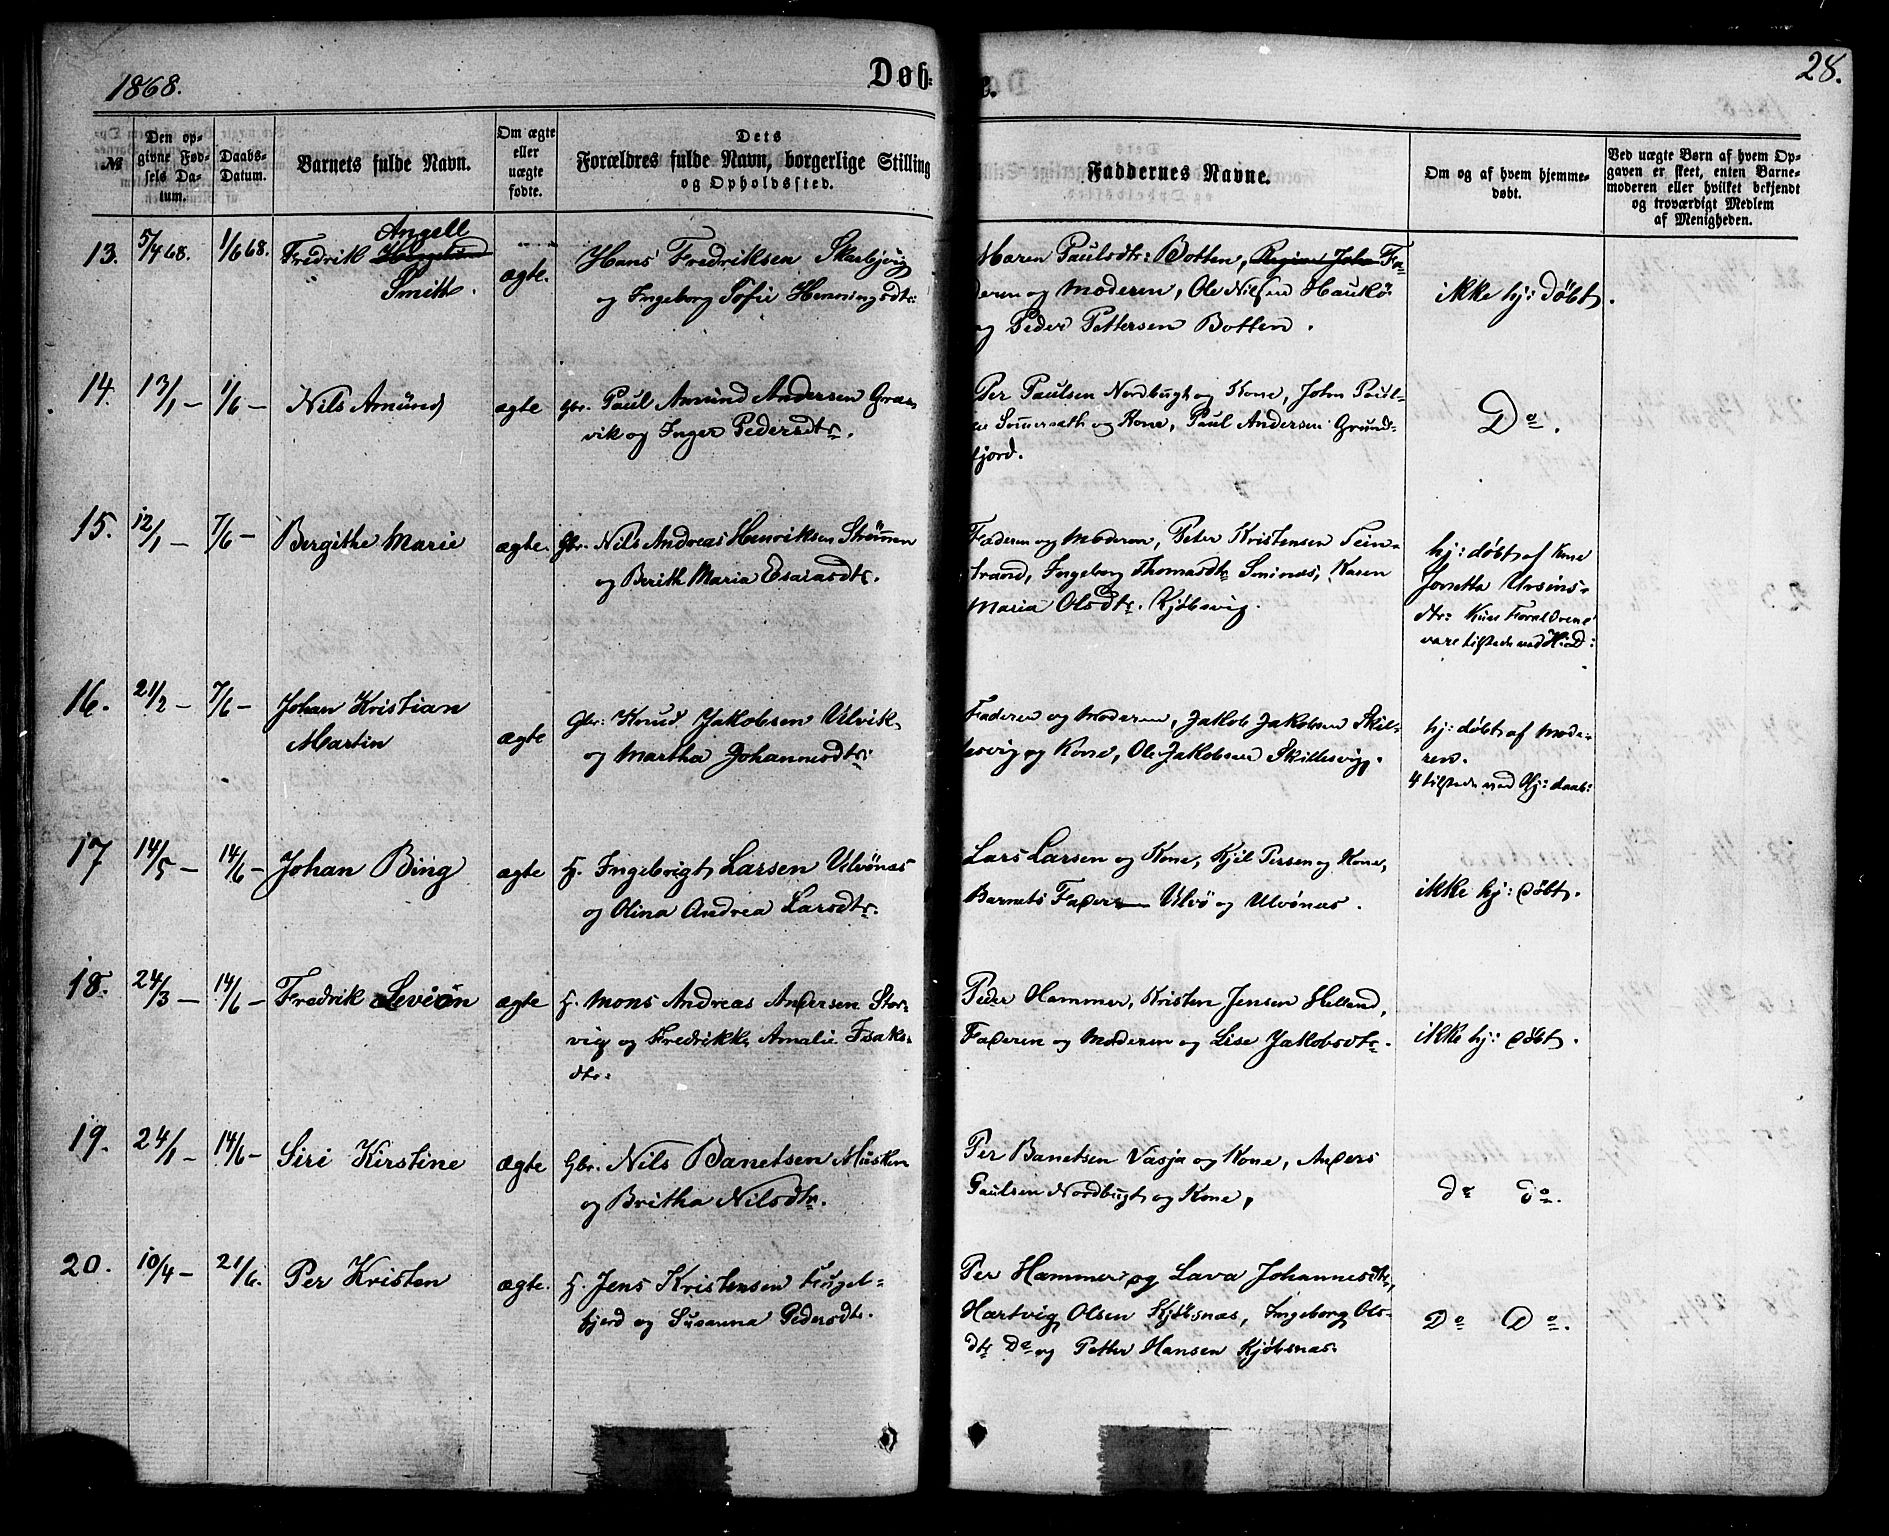 1868.
Døb-
e.
28.
№
Den opgivne Fødsels Datum.
Daabs-Datum.
Barnets fulde Navn.
Om ægte eller uægte fødte.
Dets Forældres fulde Navn, borgerlige Stilling og Opholdssted.
Faddernes Navne.
Om og af hvem hjemmedøbt.
Ved uægte Børn af hvem Opgaven er skeet, enten Barnemoderen eller hvilket bekjendt og troværdigt Medlem af Menigheden.
13. 5/4 68. 1/6 68. Fredrik Angell
Smitt.
ægte.
Hans Fredriksen
og Ingeborg Sofie Henningsdtr:
Maren Paulsdtr: Botten, Fa-
deren og Moderen, Ole Nilsen
og Peder Pettersen Botten.
ikke hj: døbt.
14. 13/1 – 1/6 – Nils Amund
ægte
Gbr. Paul Amund Andersen Grøs-
vik og Inger Pedersdtr.
Per Paulsen Nordbugt og Kone, John Paul-
og Kone, Paul Andersen Grund-
fjord.
Do.
15. 12/1 – 7/6 – Bergithe Marie
ægte.
Gbr. Nils Andreas Henriksen Strømmen
og Berith Maria Esaiasdtr.
Faderen og Moderen, Peter Kristensen Sein-
strand, Ingeborg Thomasdtr Smines, Karen
Maria Olsdtr. Kjøbsvig.
hj: døbt af Kone
Jonetta Ursins-
dtr: Kun Forældrene
vare tilstede ved Hj D:
16. 21/2 – 7/6 – Johan Kristian
Martin
ægte
Gbr: Knud Jakobsen Ulvik
og Martha Johannesdtr:
Faderen og Moderen, Jakob Jakobsen Skil-
lesvig og Kone, Ole Jakobsen Skillesvig.
hj: døbt af Mode-
ren.
4 tilstede ved Hj: daab:
17 14/5 – 14/6 – Johan Bing
ægte
H. Ingebrigt Larsen Ulvönæs
og Olina Andrea Larsdtr.
Lars Larsen og Kone, Kjel Persen og Kone,
Barnets Fader Ulvö og Ulvönæs.
ikke hj: døbt.
18. 24/3 – 14/6 – Fredrik Leviön
ægte
H. Mons Andreas Andersen Stor-
vig og Fredrikke Amalie Isaks-
dtr:
Peder Hammer, Kristen Jensen Helland,
Faderen og Moderen og Lise Jakobsdtr.
ikke hj: døbt.
19. 24/1 – 14/6 – Siri Kirstine
ægte
Gbr. Nils Banetsen Musken
og Britha Nilsdtr.
Per Banetsen Vasja og Kone, Anders
Paulsen Nordbugt og Kone,
do do.
20. 10/4 – 21/6. Per Kristen
ægte.
H. Jens Kristensen Fugel-
fjord og Susanna Pedersdtr.
Per Hammer og Lava Johannesdtr,
Hartvig Olsen Kjöbsnæs, Ingeborg Ols-
dtr Do og Petter Hansen Kjøbsnæs
Do Do.